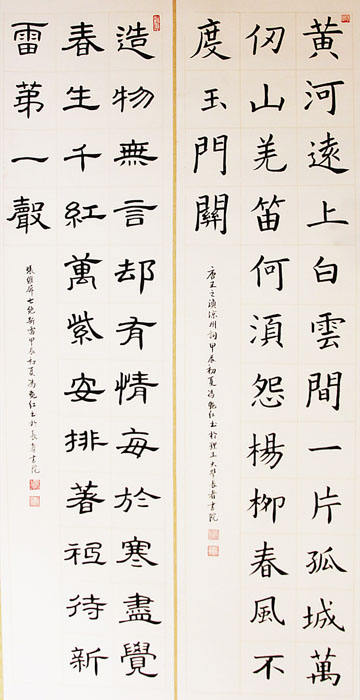 黄河遠上白雲間一片孤城萬
仞山羌笛何湏怨楊栁春風不
度玉門關
唐王之涣凉州詞甲辰初夏馮艶红書於理工大学長者書院
造物無言却有情每於寒盡覺
春生千紅萬紫安排著祗待新
雷苐一聲
張維屏七絶新雷甲辰初夏馮艶红書於長者書院